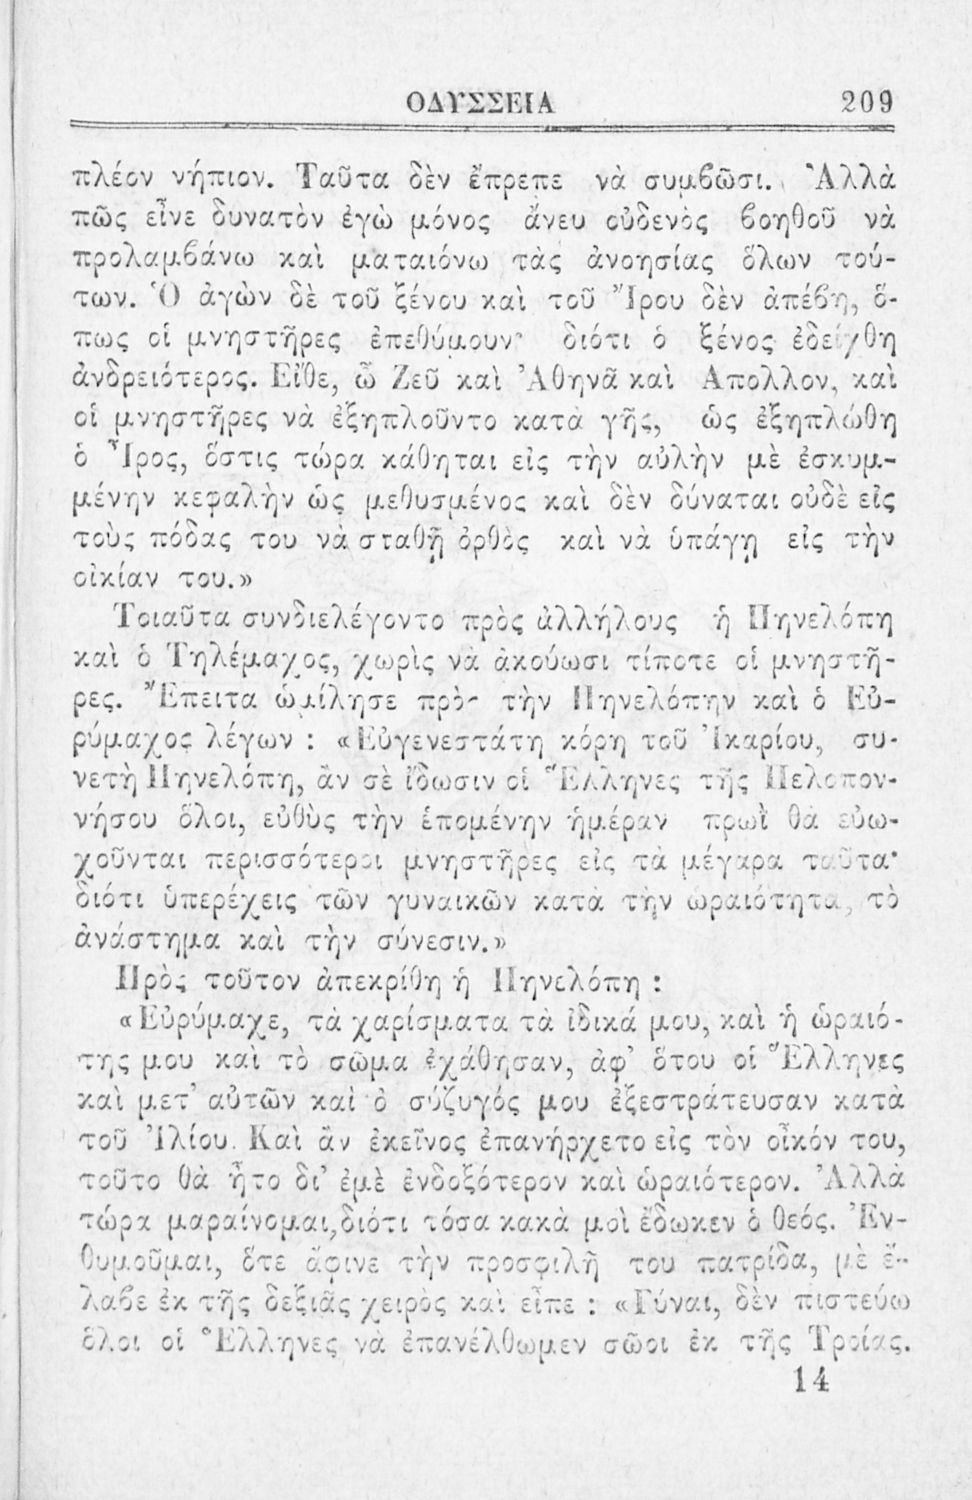 ΟΔΥΣΣΕΙΑ 209
πλέον νήπιον. Ταῦτα δὲν ἔπρεπε νὰ συμβῶσι. Ἀλλὰ
πῶς εἶνε δυνατὸν ἐγὼ μόνος ἄνευ οὐδενὸς βοηθοῦ νὰ
προλαμβάνω καὶ ματαιόνω τὰς ἀνοησίας ὅλων τού-
των. Ὁ ἀγὼν δὲ τοῦ ξένου καὶ τοῦ Ἴρου δὲν ἀπέβη, ὅ-
πως οἱ μνηστῆρες ἐπεθύμουν· διότι ὁ ξένος ἐδείχθη
ἀνδρειότερος. Εἴθε, ὦ Ζεῦ καὶ Ἀθηνᾶ καὶ Απολλον, καὶ
οἱ μνηστῆρες νὰ ἐξηπλοῦντο κατὰ γῆς, ὡς ἐξηπλώθη
ὁ Ἶρος, ὅστις τώρα κάθηται εἰς τὴν αὐλὴν μὲ ἐσκυμ-
μένην κεφαλὴν ὡς μεθυσμένος καὶ δὲν δύναται οὐδὲ εἰς
τοὺς πόδας του νὰ σταθῇ ὀρθὸς καὶ νὰ ὑπάγῃ εἰς τὴν
οἰκίαν του.»
Τοιαῦτα συνδιελέγοντο πρὸς ἀλλήλους ἡ Πηνελόπη
καὶ ὁ Τηλέμαχος, χωρὶς νὰ ἀκούωσι τίποτε οἱ μνηστῆ-
ρες. Ἔπειτα ὡμίλησε πρὸς τὴν Πηνελόπην καὶ ὁ Εὐ-
ρύμαχος λέγων : «Εὐγενεστάτη κόρη τοῦ Ἰκαρίου, συ-
νετὴ Πηνελόπη, ἂν σὲ ἴδωσιν οἱ Ἕλληνες τῆς Πελοπον-
νήσου ὅλοι, εὐθὺς τὴν ἑπομένην ἡμέραν πρωῒ θὰ εὐω-
χοῦνται περισσότεροι μνηστῆρες εἰς τὰ μέγαρα ταῦτα·
διότι ὑπερέχεις τῶν γυναικῶν κατὰ τὴν ὡραιότητα, τὸ
ἀνάστημα καὶ τὴν σύνεσιν.»
Πρὸς τοῦτον ἀπεκρίθη ἡ Πηνελόπη :
«Εὐρύμαχε, τὰ χαρίσματα τὰ ἰδικά μου, καὶ ἡ ὡραιό-
της μου καὶ τὸ σῶμα ἐχάθησαν, ἀφ’ ὅτου οἱ Ἕλληνες
καὶ μετ’ αὐτῶν καὶ ὁ σύζυγός μου ἐξεστράτευσαν κατὰ
τοῦ Ἰλίου. Καὶ ἂν ἐκεῖνος ἐπανήρχετο εἰς τὸν οἶκόν του,
τοῦτο θὰ ἦτο δι’ ἐμὲ ἐνδοξότερον καὶ ὡραιότερον. Ἀλλὰ
τώρα μαραίνομαι, διότι τόσα κακὰ μοὶ ἔδωκεν ὁ θεός. Ἐν-
θυμοῦμαι, ὅτε ἄφινε τὴν προσφιλῆ του πατρίδα, μὲ ἔ-
λαβε ἐκ τῆς δεξιᾶς χειρὸς καὶ εἶπε : «Γύναι, δὲν πιστεύω
ὅλοι οἱ Ἕλληνες νὰ ἐπανέλθωμεν σῶοι ἐκ τῆς Τροίας.
14